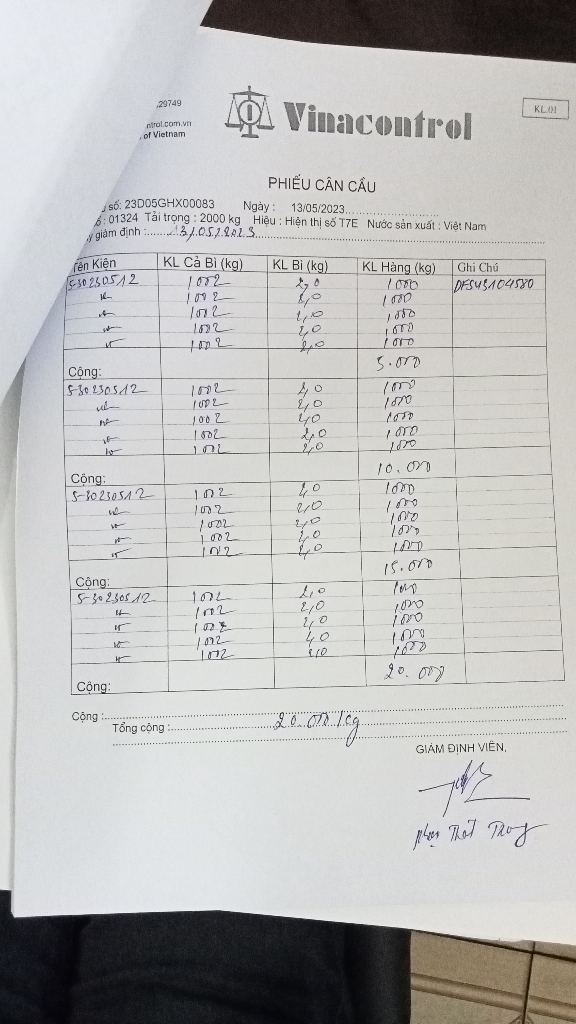 ,29749
ntrol.com.vn
of Vietnam
Vinacontrol
KL.01
PHIẾU CÂN CẨU
số: 23D05GHX00083 Ngày : 13/05/2023
: 01324 Tải trọng : 2000 kg Hiệu : Hiện thị số T7E Nước sản xuất : Việt Nam
giám định : 13/05/2023
Tên Kiện KL Cả Bì (kg) KL Bì (kg) KL Hàng (kg) Ghi Chú
5-30230512 1002 2,0 1000 DFSU3104580
〃 1002 2,0 1000
〃 1002 2,0 1000
〃 1002 2,0 1000
〃 1002 2,0 1000
Cộng: 5.000
5-30230512 1002 2,0 1000
〃 1002 2,0 1000
〃 1002 2,0 1000
〃 1002 2,0 1000
〃 1002 2,0 1000
Cộng: 10.000
5-30230512 1002 2,0 1000
〃 1002 2,0 1000
〃 1002 2,0 1000
〃 1002 2,0 1000
〃 1002 2,0 1000
Cộng: 15.000
5-30230512 1002 2,0 1000
〃 1002 2,0 1000
〃 1002 2,0 1000
〃 1002 2,0 1000
〃 1002 2,0 1000
Cộng: 20.000
Cộng :
Tổng cộng : 20.000 kg
GIÁM ĐỊNH VIÊN,